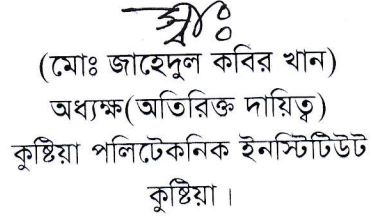 স্বাঃ
(মোঃ জাহেদুল কবির খান)
অধ্যক্ষ(অতিরিক্ত দায়িত্ব)
কুষ্টিয়া পলিটেকনিক ইনস্টিটিউট
কুষ্টিয়া ।